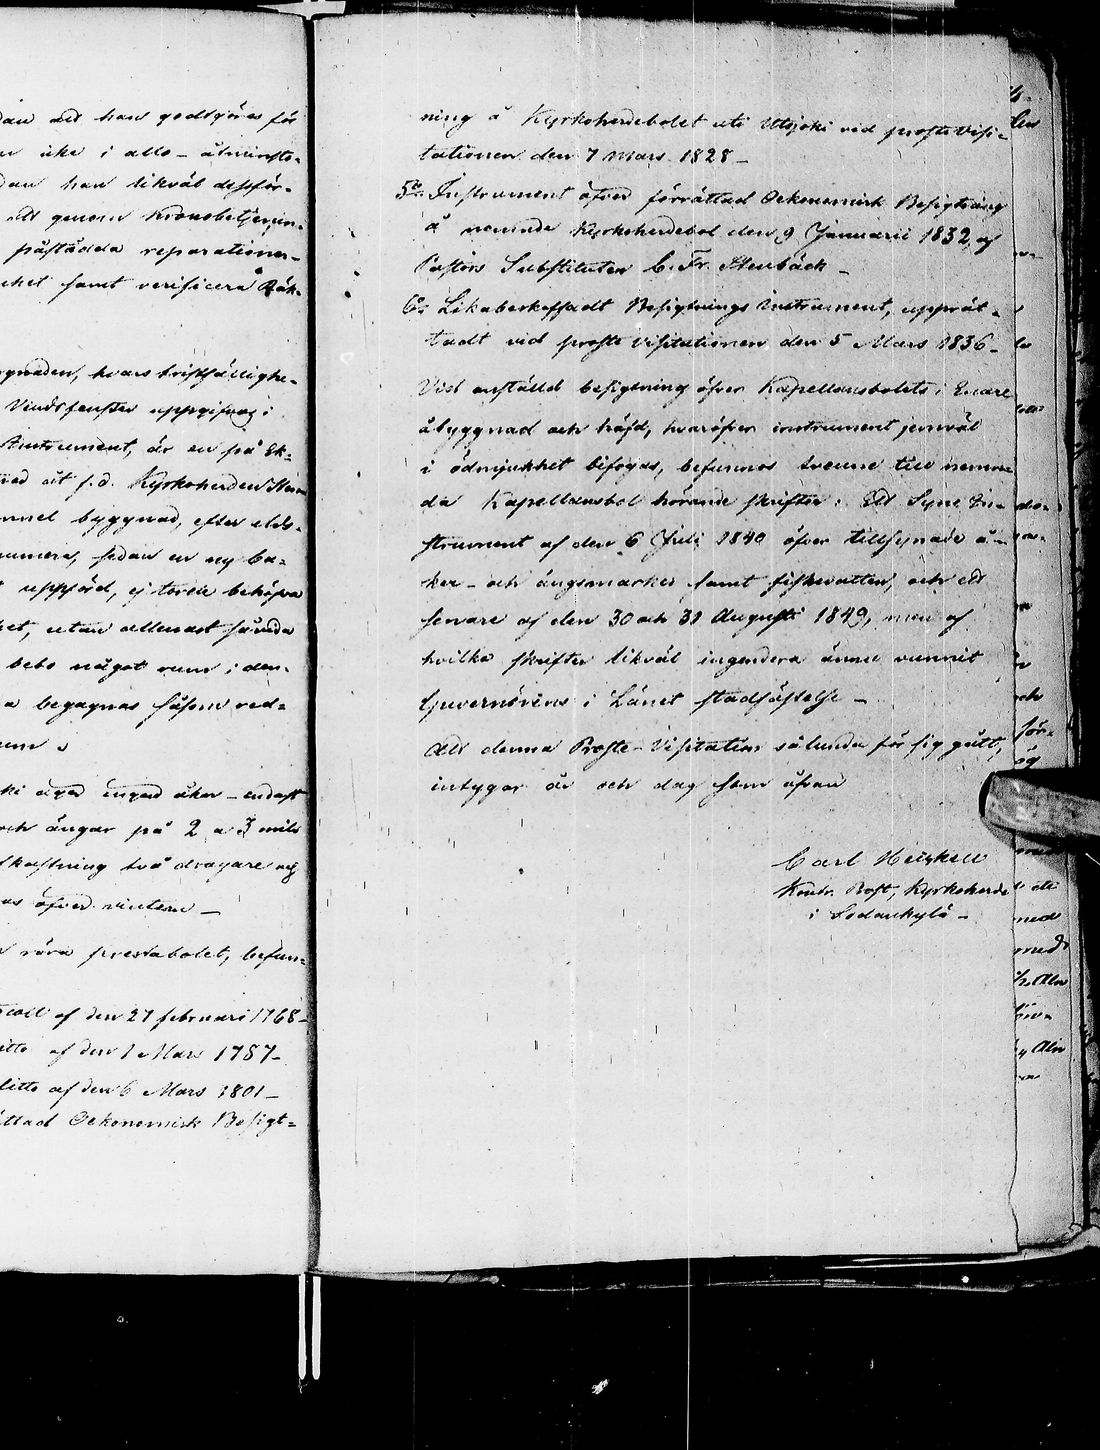 dan att han godtgöres för
icke i allo - åtminsto-
dan han likväl dessför-
att genom Kronobetjenin-
påstådda reparationer-
samt verificera Räk-
hvars bristfällighe-
Vindsfenster uppgifvas i
Instrument, är en på Ek-
åt f.d. Kyrkoherden
byggnad, efter elds-
sedan en ny ba-
uppförd, ej torde behöfva
utan allenast
bebo något rum i den-
a begagnas såsom ved-
rum
äger ingen åker - endast
och ängar på 2 a 3 mils
två dragare och
öfver vintern -
röra prestabolet, befun-
af den 27 februari 1768 -
ditto af den 1 Mars 1787 -
ditto af den 6 Mars 1801 -
Oekonomisk Besigt-
ning å Kyrkoherdebolet uti Utsjoki vid proste Visi-
tationen den 7 Mars 1828 -
5:o Instrument öfver förrättad Oekonomisk Besigtning
å nämnde Kyrkoherdebol den 9 Januarii 1832 af
Pastors Substituten C. Fr. Stenbäck -
6:o Likabeskaffadt Besigtnings Instrument, upprät-
tadt vid proste Visitationen den 5 Mars 1836 -
Vid anställd besigtning öfver Kapellansbolets i Enare
åbyggnad och häfd, hvaröfver instrumentet jemväl
i ödmjukhet bifogas, befunnos tvenne till nemn-
da Kapellansbol hörande skrifter: Ett Syne In-
strument af den 6 Juli 1840 öfver tillsynade å-
ker- och ängsmarker samt fiskevatten, och ett
senare af den 30 och 31 Augusti 1849, men af
hvilka skrifter likväl ingendera ännu vunnit
Guvernörens i Länet stadfästelse -
Att denna Proste-Visitation sålunda för sig gått,
intygar år och dag som ofvan
Carl Heickell
Kontr. Prost, Kyrkoherde
i Sodankylä -